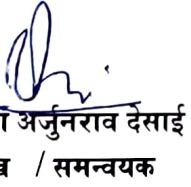 अर्जुनराव देसाई
/ समन्वयक